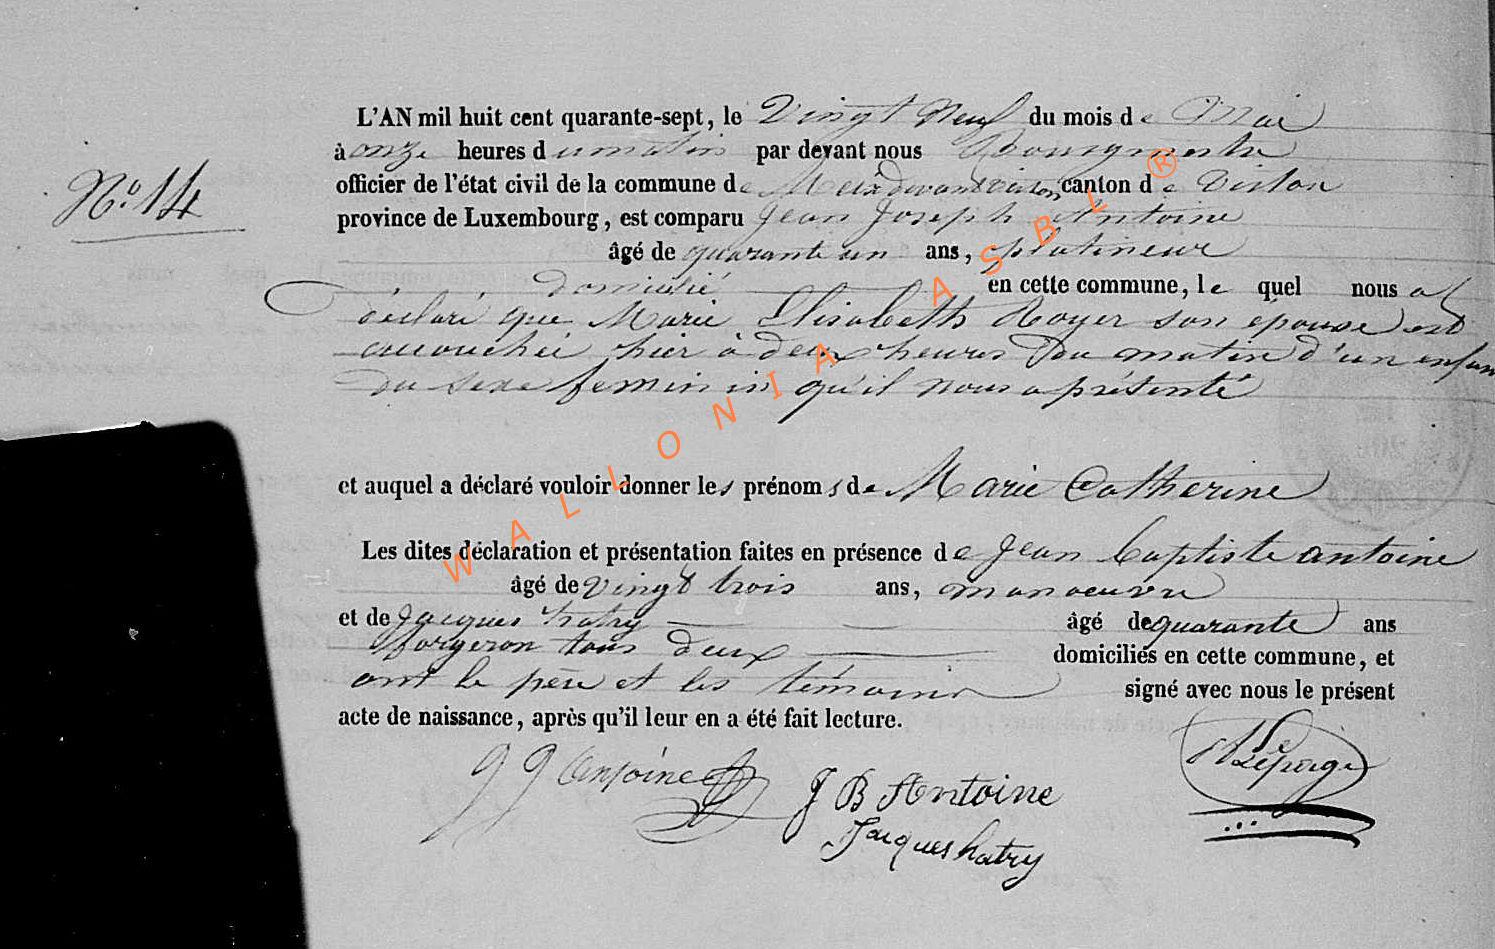 N.º 14
L'AN mil huit cent quarante-sept, le Vingt Neuf du mois de Mai
à onze heures du matin par devant nous Bourgmestre
officier de l'état civil de la commune de Meix devant Virton canton de Virton
province de Luxembourg, est comparu Jean Joseph Antoine
âgé de quarante un ans, platineur
domicilié en cette commune, le quel nous a
déclaré que Marie Elisabeth Royer son épouse est
accouchée hier à deux heures du matin d'un enfant
du sexe feminin qu'il nous a présenté
et auquel a déclaré vouloir donner les prénoms de Marie Catherine
Les dites déclaration et présentation faites en présence de Jean Baptiste antoine
âgé de vingt trois ans, manoeuvre
et de Jacques hatry âgé de quarante ans
forgeron tous deux domiciliés en cette commune, et
ont le père et les témoins signé avec nous le présent
acte de naissance, après qu'il leur en a été fait lecture.
J J Antoine
J B Antoine
Jacques hatry
WALLONIA ASBL ®